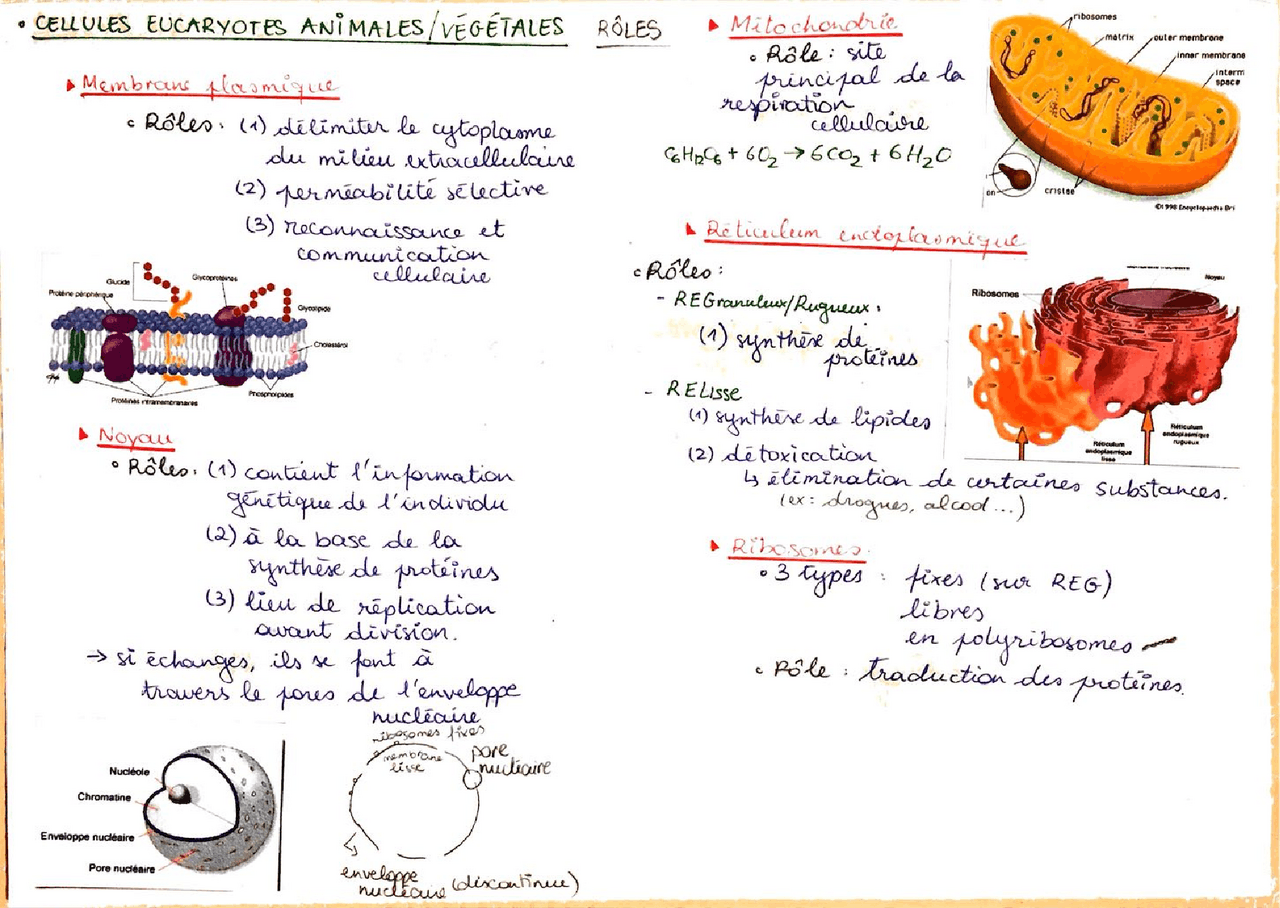 • CELLULES EUCARYOTES ANIMALES/VÉGÉTALES RÔLES
▸ Membrane plasmique
• Rôles: (1) délimiter le cytoplasme
du milieu extracellulaire
(2) perméabilité sélective
(3) reconnaissance et
communication
cellulaire
Glucide
Glycoprotéines
Protéine périphérique
Glycolipide
Cholestérol
Phospholipides
Protéines intramembranaires
▸ Noyau
• Rôles: (1) contient l'information
génétique de l'individu
(2) à la base de la
synthèse de protéines
(3) lieu de réplication
avant division.
→ si échanges, ils se font à
travers le pores de l'enveloppe
nucléaire
Nucléole
Chromatine
Enveloppe nucléaire
Pore nucléaire
ribosomes fixes
membrane
lisse
pore
nucléaire
enveloppe
nucléaire (discontinue)
▸ Mitochondrie
• Rôle: site
principal de la
respiration
cellulaire
C6H12C6 + 6O2 → 6CO2 + 6H2O
ribosomes
matrix
outer membrane
inner membrane
interm
space
on
cristae
©1998 Encyclopaedia Bri
▸ Réticulum endoplasmique
• Rôles:
- REGranuleux/Rugueux:
(1) synthèse de
protéines
- RELisse
(1) synthèse de lipides
(2) détoxication
↳ élimination de certaines substances.
(ex: drogues, alcool...)
Noyau
Ribosomes
Réticulum
endoplasmique
lisse
Réticulum
endoplasmique
rugueux
▸ Ribosomes.
• 3 types: fixes (sur REG)
libres
en polyribosomes
• Rôle: traduction des protéines.